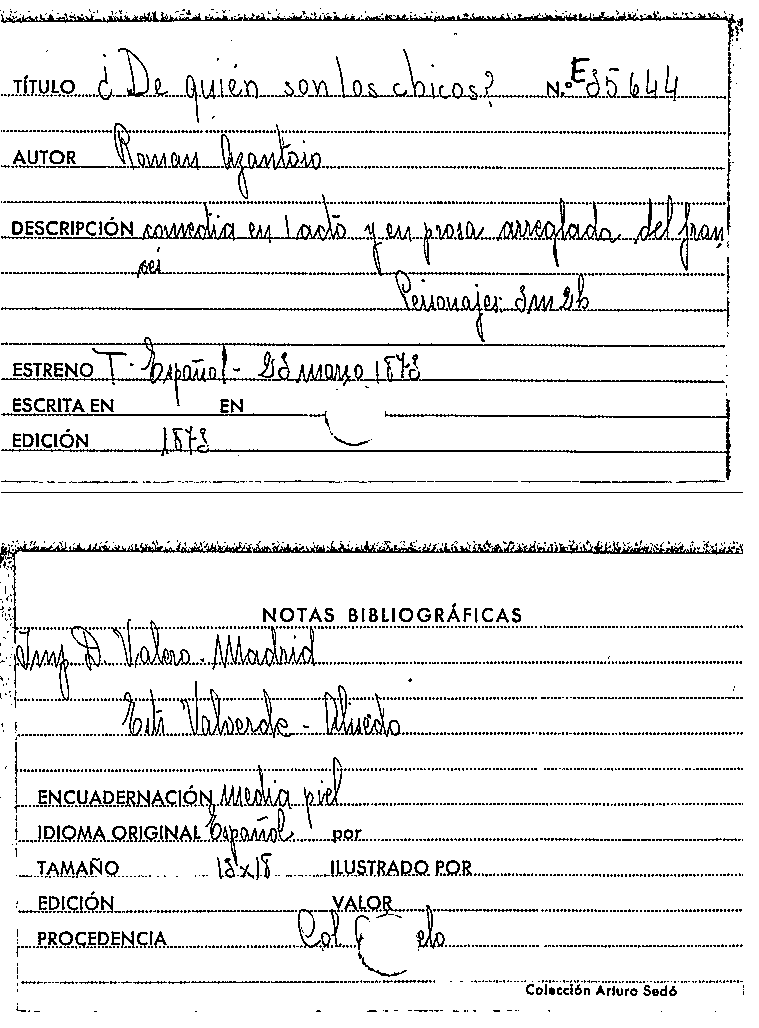 TÍTULO ¿De quién son los chicos? N.º E 35644
AUTOR Roman
DESCRIPCIÓN comedia en 1 acto y en prosa arreglada del fran
cés
Personajes: 3m 2h
ESTRENO T. Español - 23 marzo 1873
ESCRITA EN EN
EDICIÓN 1873
NOTAS BIBLIOGRÁFICAS
Imp D. Valero. Madrid
Valverde -
ENCUADERNACIÓN media piel
IDIOMA ORIGINAL Español por
TAMAÑO 13x18 ILUSTRADO POR
EDICIÓN VALOR
PROCEDENCIA Col
Colección Arturo Sedó